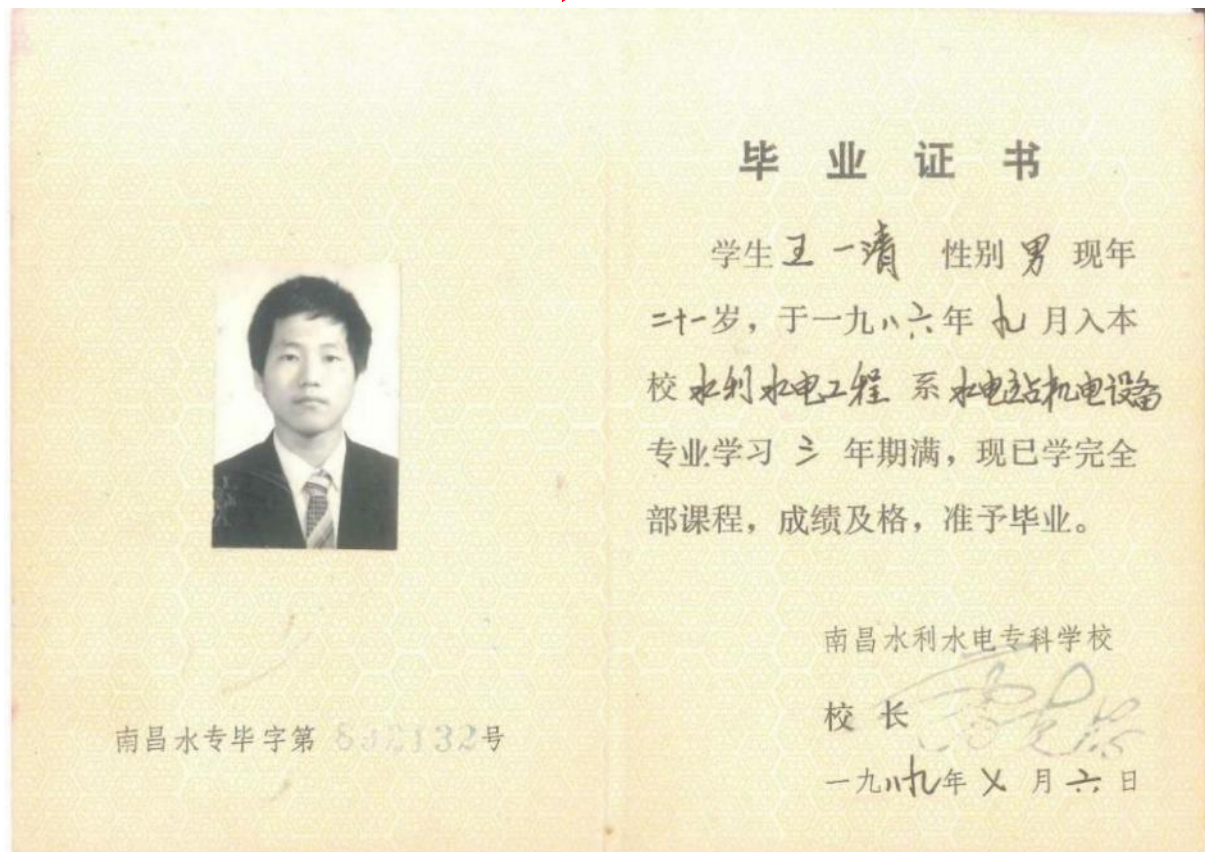 南昌水专毕字第 892132号
毕业证书
学生 王一清 性别 男 现年
二十一岁，于一九八六年 九 月入本
校 水利水电工程 系 水电站机电设备
专业学习 三 年期满，现已学完全
部课程，成绩及格，准予毕业。
南昌水利水电专科学校
校长
一九八九年 七 月 六 日